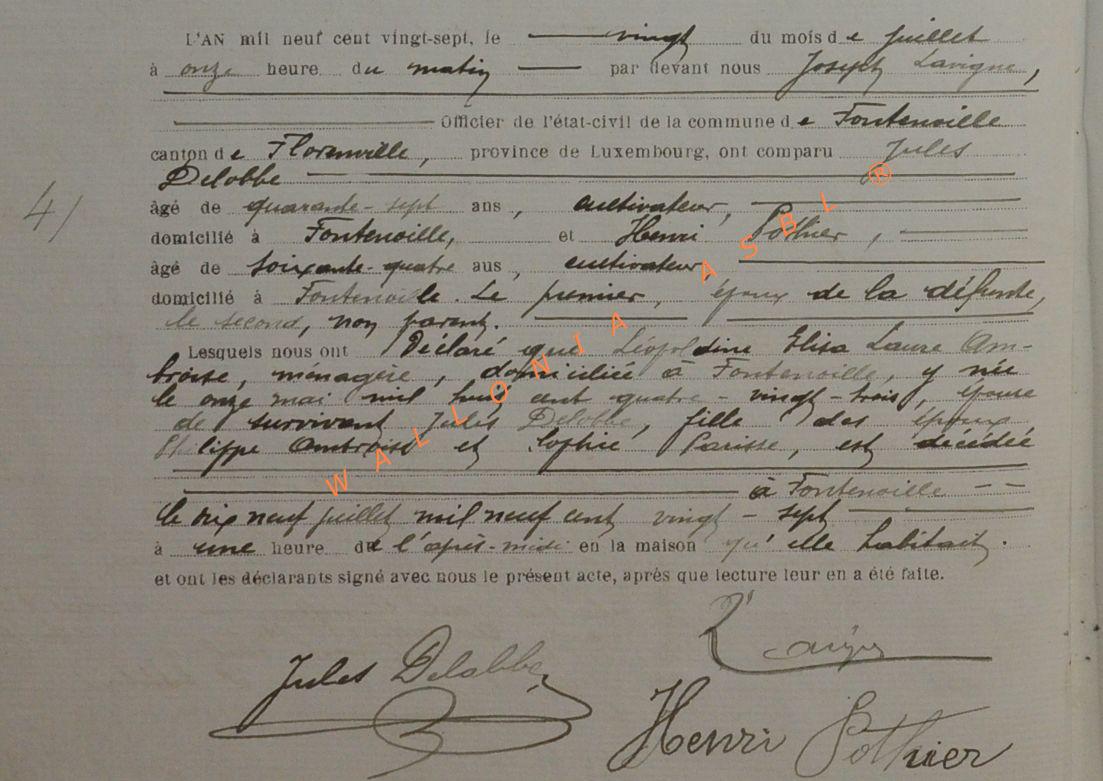 L'AN mil neuf cent vingt-sept, le vingt du mois de juillet
à onze heure du matin par devant nous Joseph Lavigne,
Officier de l'état-civil de la commune de Fontenoille
canton de Florenville, province de Luxembourg, ont comparu Jules
Delobbe
âgé de quarante-sept ans, cultivateur,
4/
domicilié à Fontenoille, et Henri Pothier,
âgé de soixante-quatre ans, cultivateur,
domicilié à Fontenoille. Le premier, époux de la défunte,
le second, non parent.
Lesquels nous ont Déclaré que Léopoldine Elisa Laure Am-
broise, ménagère, domiciliée à Fontenoille, y née
le onze mai mil huit cent quatre-vingt-trois, épouse
de survivant Jules Delobbe, fille des époux
Philippe Ambroise et Sophie Parisse, est décédée
à Fontenoille
le dix neuf juillet mil neuf cent vingt-sept
à une heure de l'après-midi en la maison qu'elle habitait.
et ont les déclarants signé avec nous le présent acte, après que lecture leur en a été faite.
Jules Delobbe
Henri Pothier
WALLONIA ASBL ®